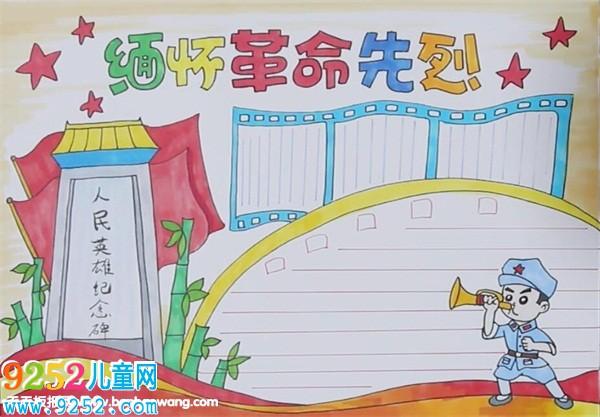 缅怀革命先烈
人民英雄纪念碑
9252儿童网
www.9252.com